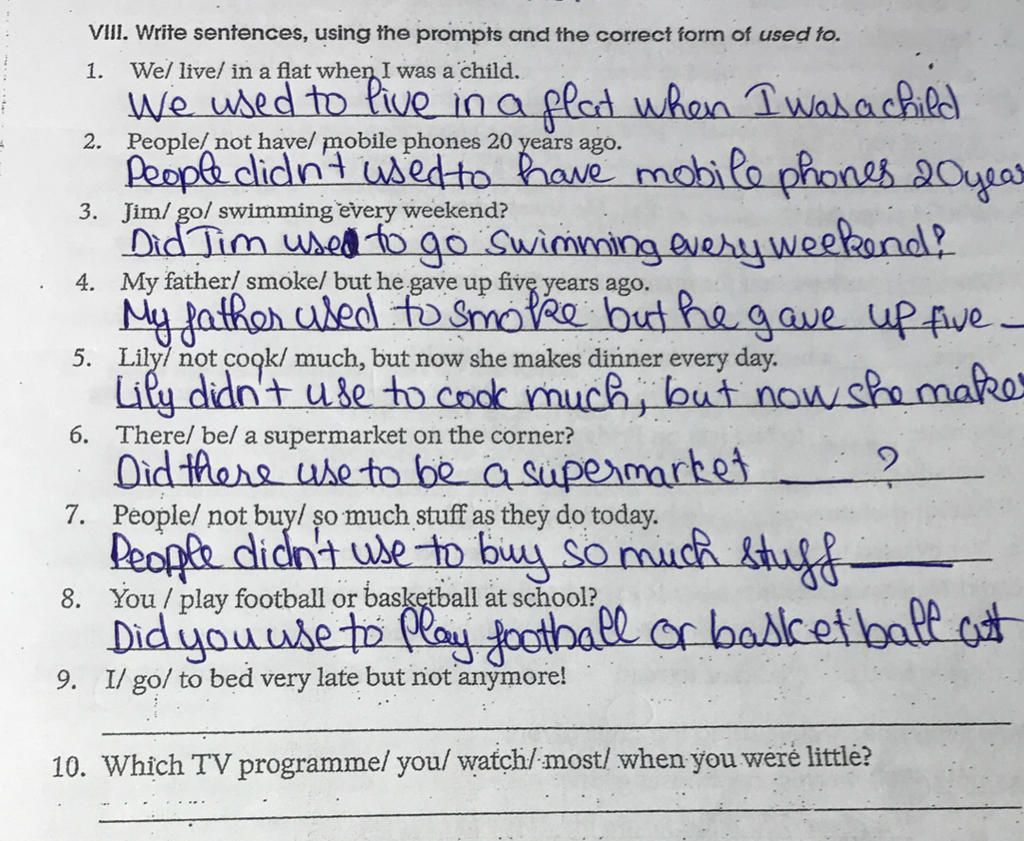 VIII. Write sentences, using the prompts and the correct form of used to.
1. We/ live/ in a flat when I was a child.
We used to live in a flat when I was a child
2. People/ not have/ mobile phones 20 years ago.
People didn't used to have mobile phones 20 year
3. Jim/ go/ swimming every weekend?
Did Jim use to go swimming every weekend?
4. My father/ smoke/ but he gave up five years ago.
My father used to smoke but he gave up five _
5. Lily/ not cook/ much, but now she makes dinner every day.
Lily didn't use to cook much, but now she makes
6. There/ be/ a supermarket on the corner?
Did there use to be a supermarket ___ ?
7. People/ not buy/ so much stuff as they do today.
People didn't use to buy so much stuff ___
8. You / play football or basketball at school?
Did you use to play football or basketball at
9. I/ go/ to bed very late but not anymore!
10. Which TV programme/ you/ watch/ most/ when you were little?